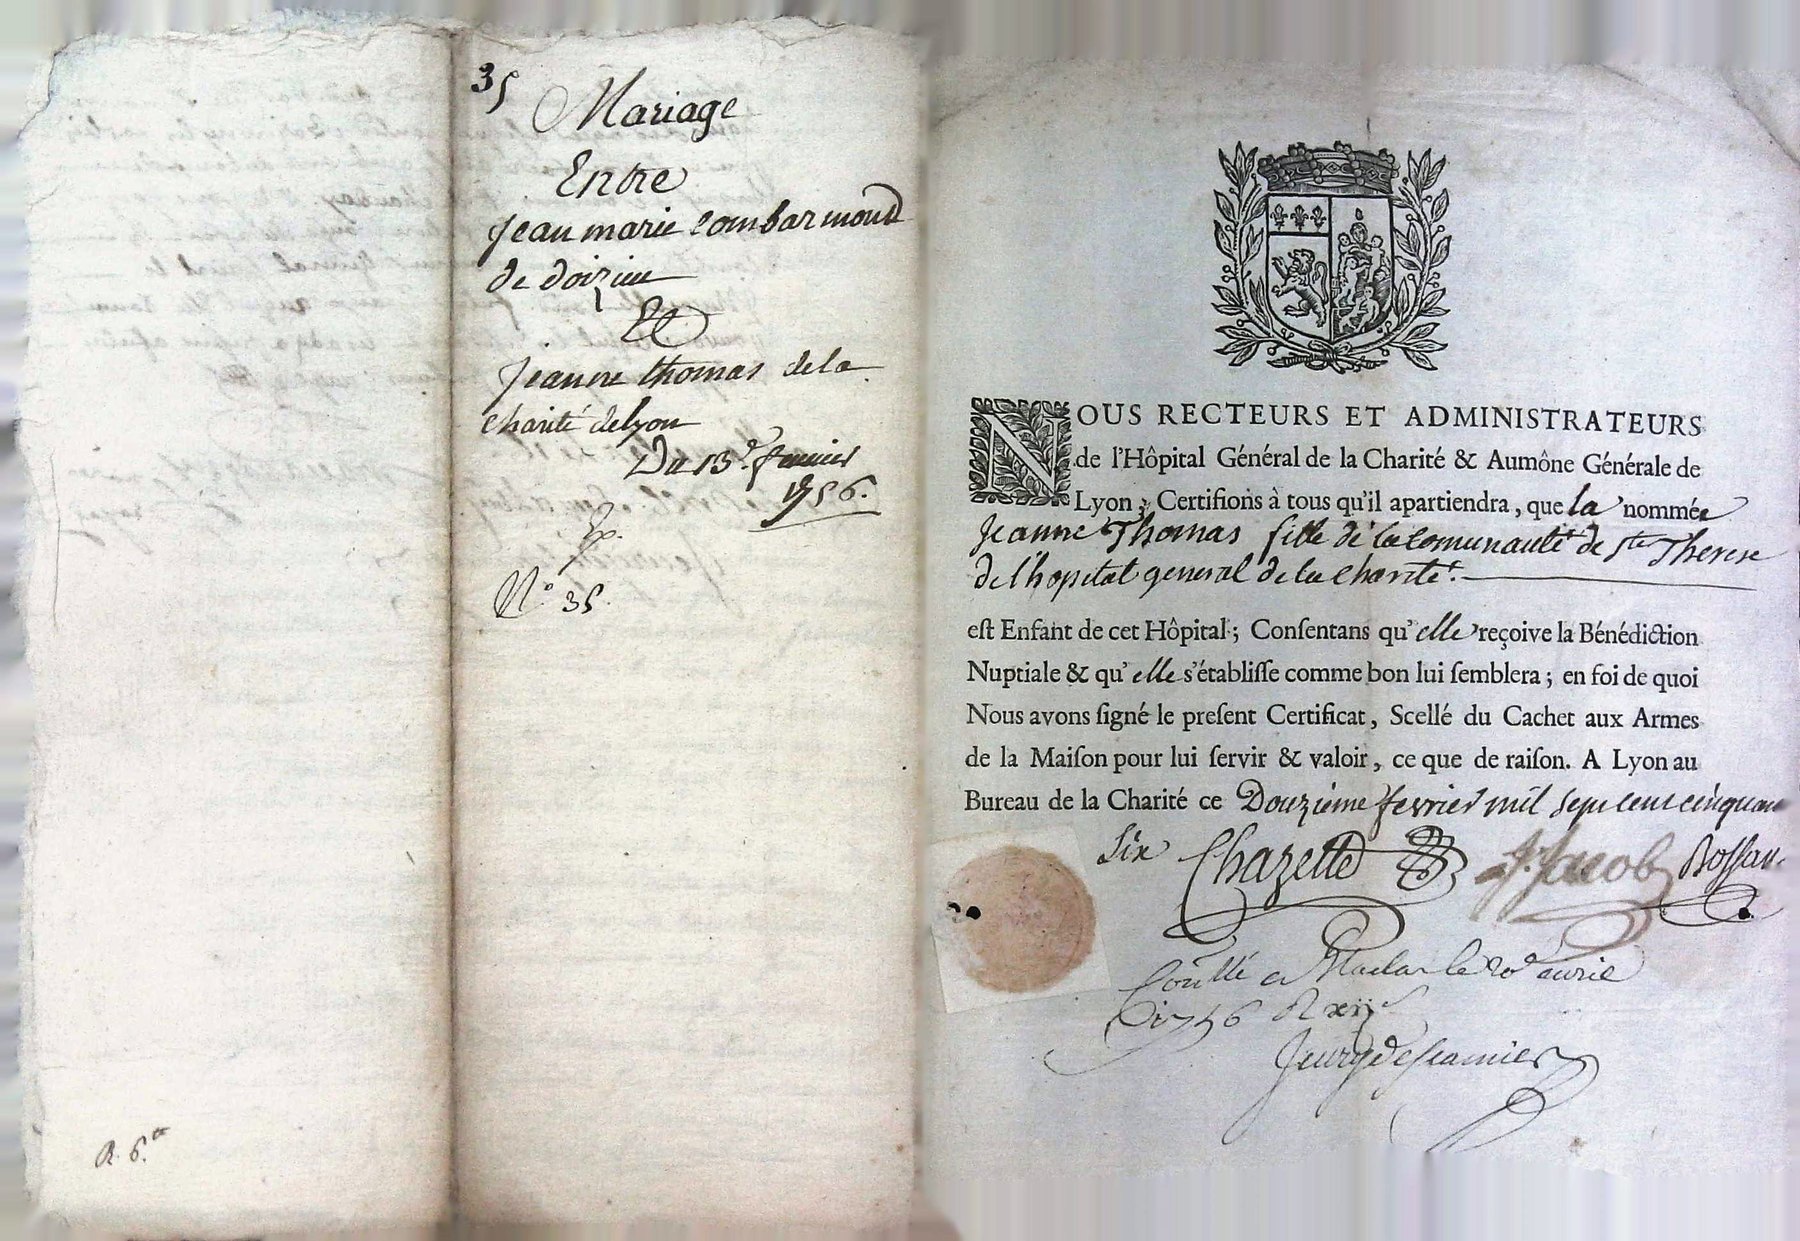 35
Mariage
Entre
Jean marie Combarmond
de doizieu
Et
Jeanne thomas de la
charité de lyon
Du 13e. fevrier
1756.
N° 35.
R. 6.
NOUS RECTEURS ET ADMINISTRATEURS
de l'Hôpital Général de la Charité & Aumône Générale de
Lyon; Certifions à tous qu'il apartiendra, que la nommée
Jeanne Thomas fille de la Comunauté de Ste Therese
de l'hopital general de la Charité.
est Enfant de cet Hôpital; Consentans qu'elle reçoive la Bénédiction
Nuptiale & qu'elle s'établisse comme bon lui semblera; en foi de quoi
Nous avons signé le present Certificat, Scellé du Cachet aux Armes
de la Maison pour lui servir & valoir, ce que de raison. A Lyon au
Bureau de la Charité ce Douzième fevrier mil sept cent cinquan
Six Chazette J. Jacob
le 20e avril
1756 R xijs